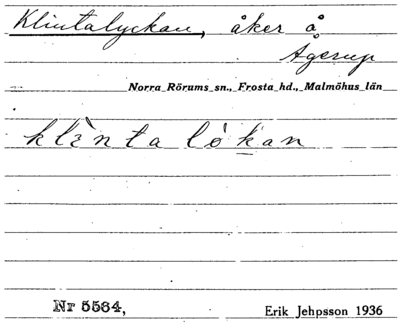 Klintalyckan, åker å
Agerup
Norra Rörums sn., Frosta hd., Malmöhus län
klènta lòkan
Nr 5584,
Erik Jehpsson 1936